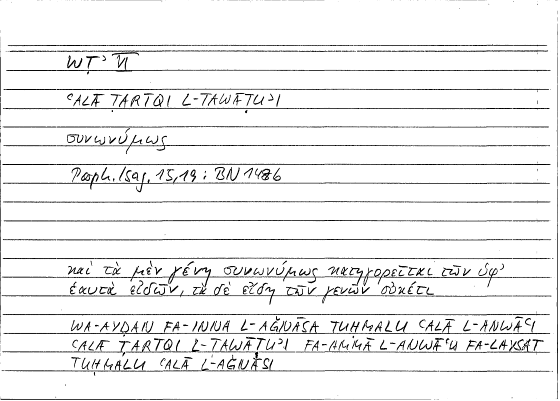 WṬʾ VI
ʿALĀ ṬARĪQI L-TAWĀṬUʾI
συνωνύμως
Porph. Isag. 15,19 : BN 148b
καὶ τὰ μὲν γένη συνωνύμως κατηγορεῖται τῶν ὑφ'
ἑαυτὰ εἰδῶν, τὰ δὲ εἴδη τῶν γενῶν οὐκέτι
WA-AYḌAN FA-INNA L-AǦNĀSA TUḤMALU ʿALĀ L-ANWĀʿI
ʿALĀ ṬARĪQI L-TAWĀṬUʾI FA-AMMĀ L-ANWĀʿU FA-LAYSAT
TUḤMALU ʿALĀ L-AǦNĀSI